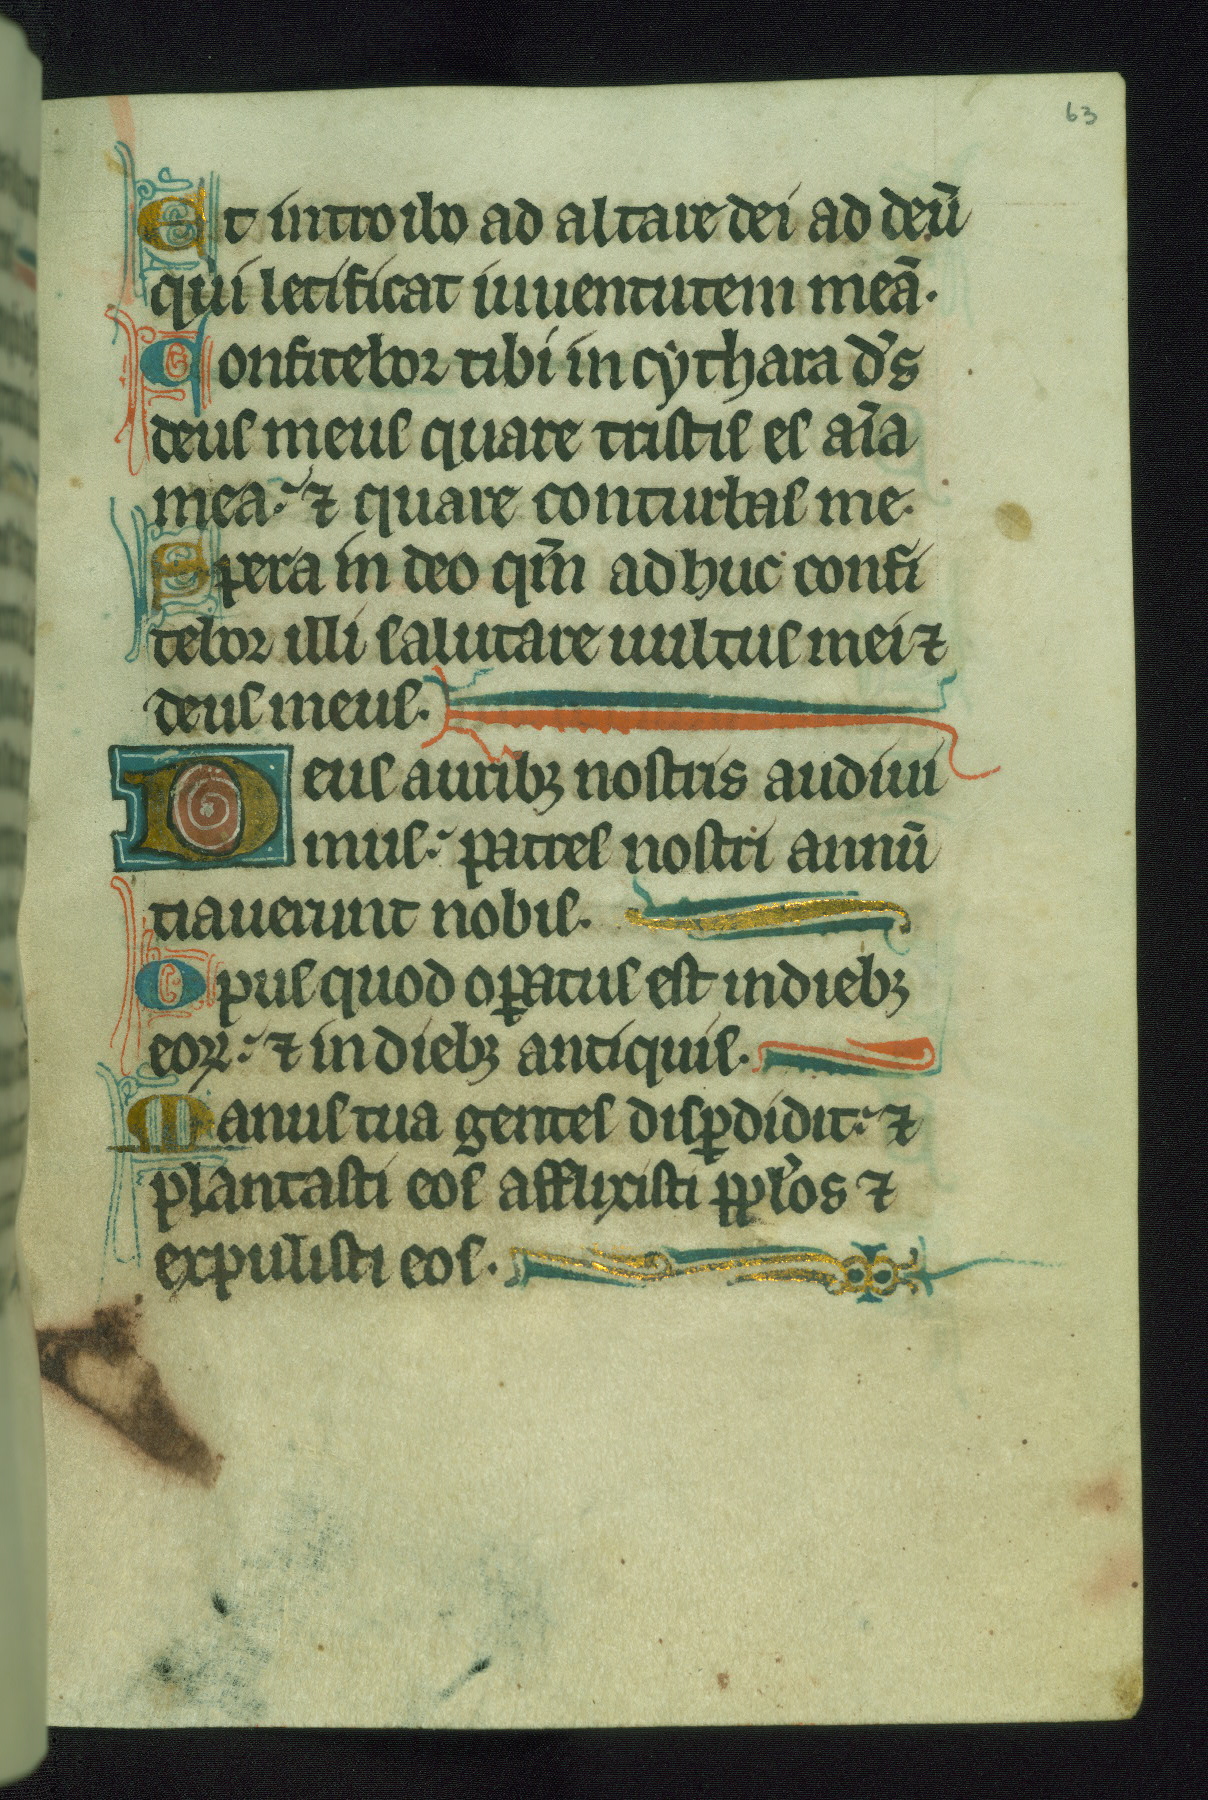 63
Et introibo ad altare dei ad deū
qui letificat iuuentutem meā.
Confitebor tibi in cythara ds̄
deus meus quare tristis es aīa
mea: ⁊ quare conturbas me.
Spera in deo qm̄ adhuc confi
tebor illi salutare uultus mei ⁊
deus meus.
Deus auribꝫ nostris audiui
mus: patres nostri annū
tiauerunt nobis.
Opus quod oꝑatus est in diebꝫ
eoꝝ: ⁊ in diebꝫ antiquis.
Manus tua gentes disꝑdidit: ⁊
plantasti eos afflixisti ppl̄os ⁊
expulisti eos.